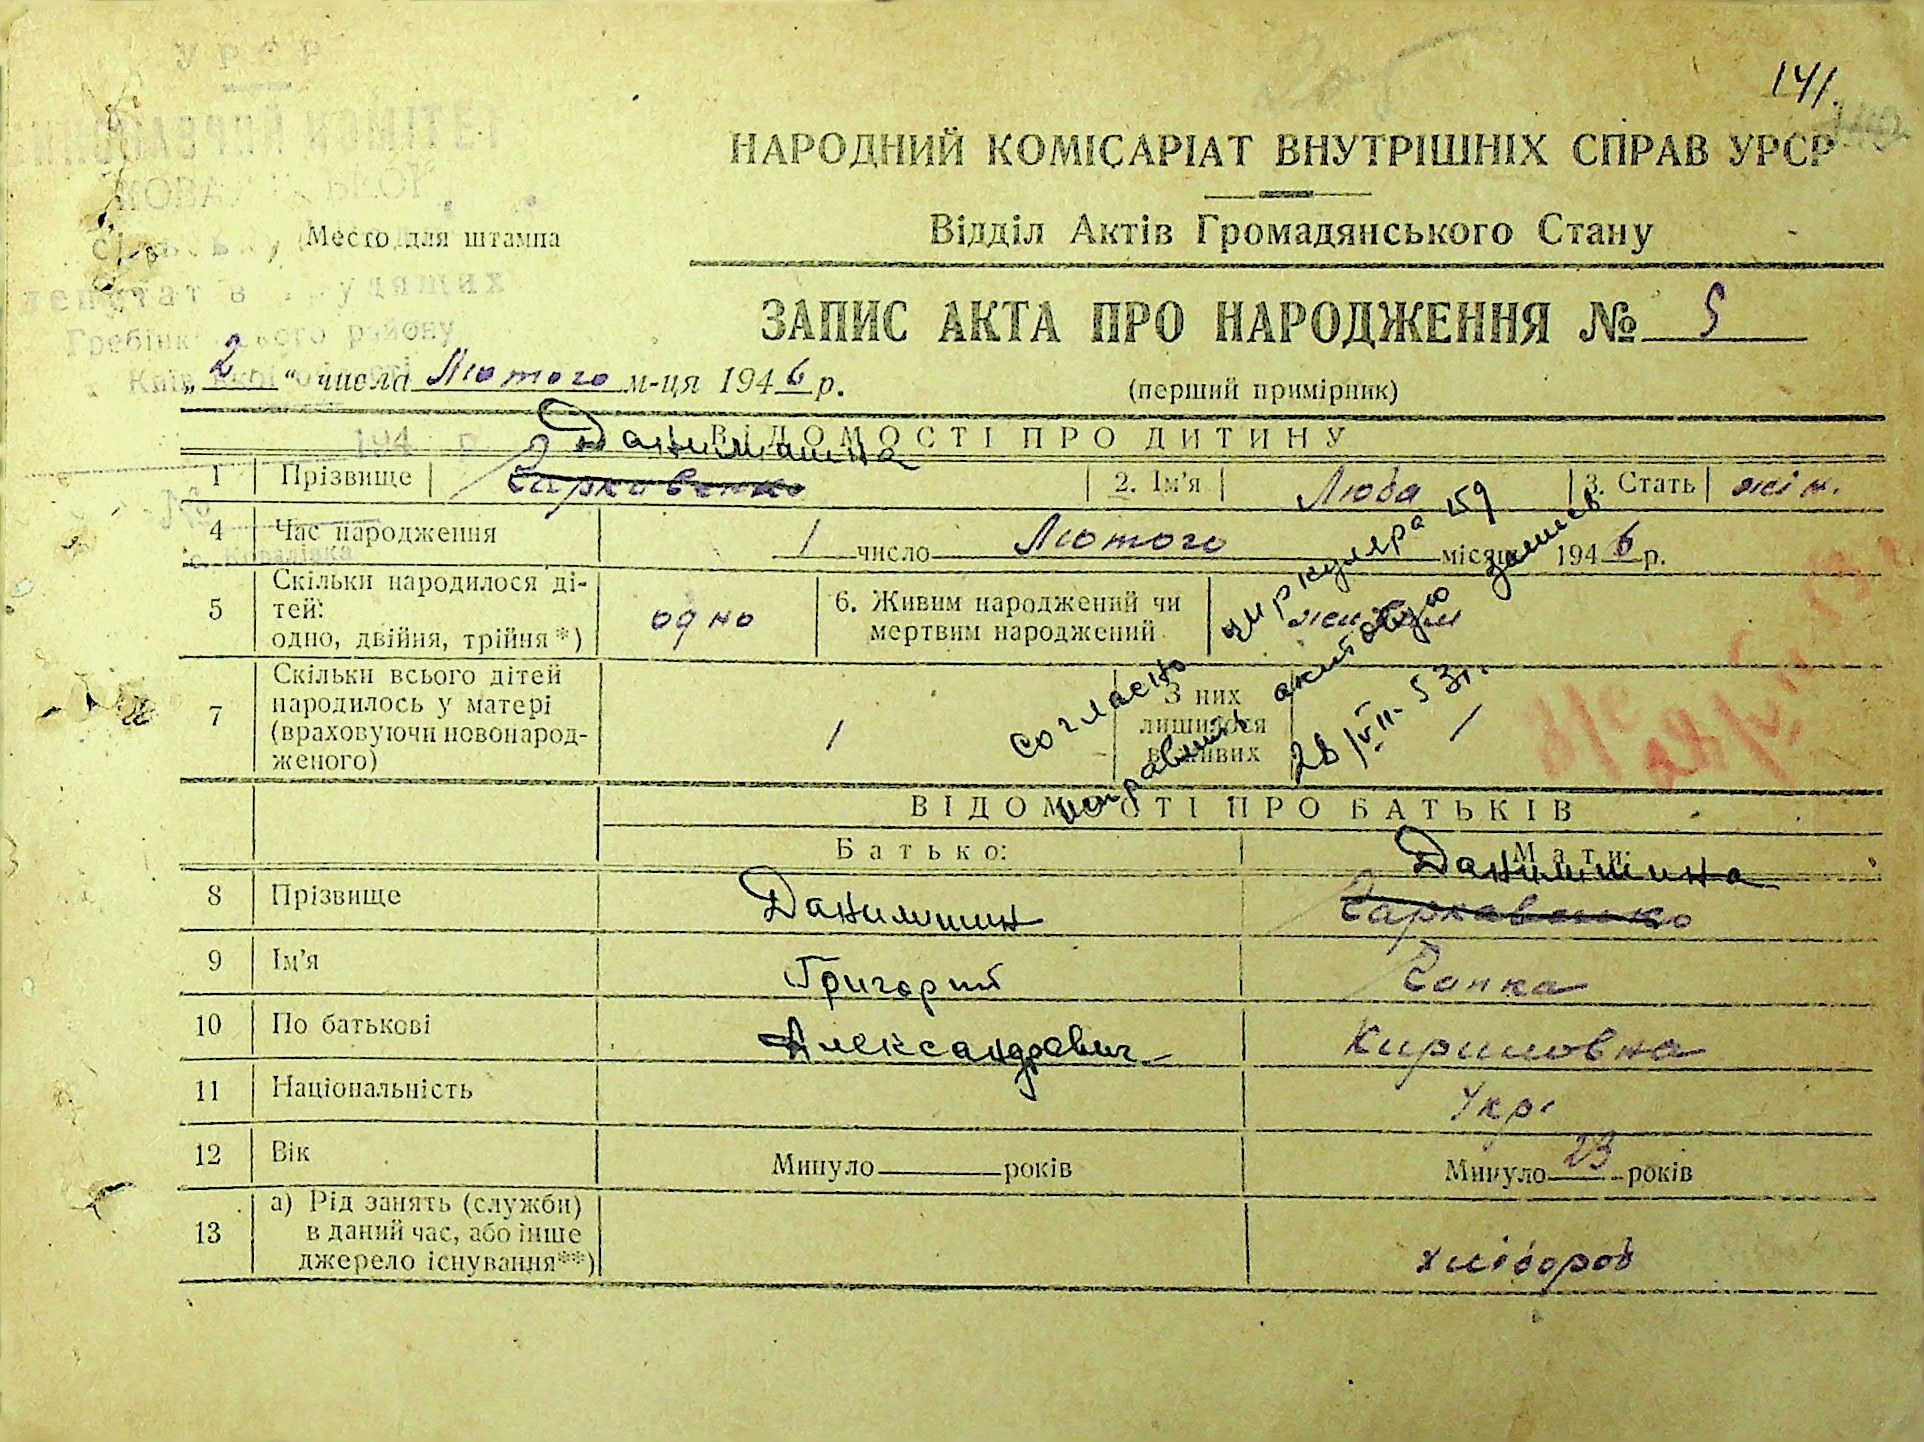 141.
УРСР
НАРОДНИЙ КОМІСАРІАТ ВНУТРІШНІХ СПРАВ УРСР
Відділ Актів Громадянського Стану
Место для штампа
Гребінківського району
ЗАПИС АКТА ПРО НАРОДЖЕННЯ № 5
„2“ числа Лютого м-ця 1946 р.
(перший примірник)
194 г.
ВІДОМОСТІ ПРО ДИТИНУ
Данимшина
1 Прізвище Гаркавенко 2. Ім’я Люба 3. Стать жін.
№
с. Ковалівка
4 Час народження 1 число Лютого місяця 1946 р.
5 Скільки народилося ді-
тей:
одно, двійня, трійня*) одно 6. Живим народжений чи
мертвим народжений живим
7 Скільки всього дітей
народилось у матері
(враховуючи новонарод-
женого) 1 З них
лишилося
в живих 1
согласно циркуляра 159
исправить актовую запись
28/VII-53г.
ВІДОМОСТІ ПРО БАТЬКІВ
Батько: Мати:
Данимшина
8 Прізвище Данимшин Гаркавенко
9 Ім’я Григорий Ганка
10 По батькові Александрович Кириловна
11 Національність Укр.
12 Вік Минуло років Минуло 23 років
13 а) Рід занять (служби)
в даний час, або інше
джерело існування**) хлібороб